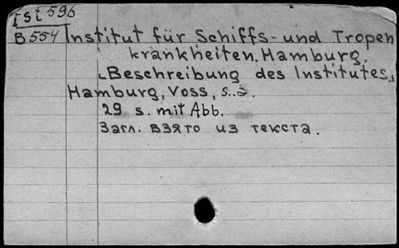 Ist 596
B554 Institut für Schiffs- und Tropen
krankheiten, Hamburg.
Beschreibung des Institutes,
Hamburg, Voss, s.a.
29 s. mit Abb.
Загл. взято из текста.